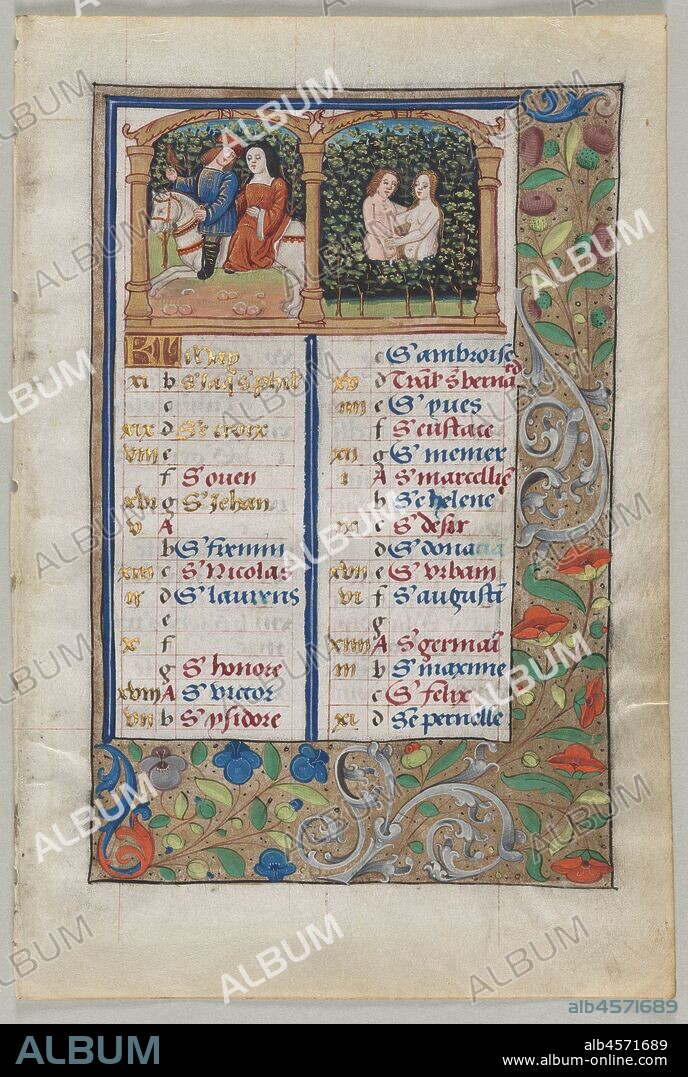 KL May
xi b S. Jaq. S. phile
c
xix d Ste croix
viii e
f S. ouen
xvi g S. Jehan
v A
b S. firmin
xiii c S. Nicolas
ii d S. laurens
e
x f
g S. honore
xviii A S. victor
vii b S. ysidore
c S. ambroise
xv d Trāsl. S. bernard
iiii e S. yues
f S. eustace
xii g S. memer
i A S. marcellin
b Ste helene
ix c S. desir
d S. donacia
xvii e S. vrbain
vi f S. augusti
g
xiiii A S. germain
iii b S. maxime
c S. felix
xi d Ste pernelle
ALBUM
alb4571689
ALBUM
alb4571689
www.album-online.com